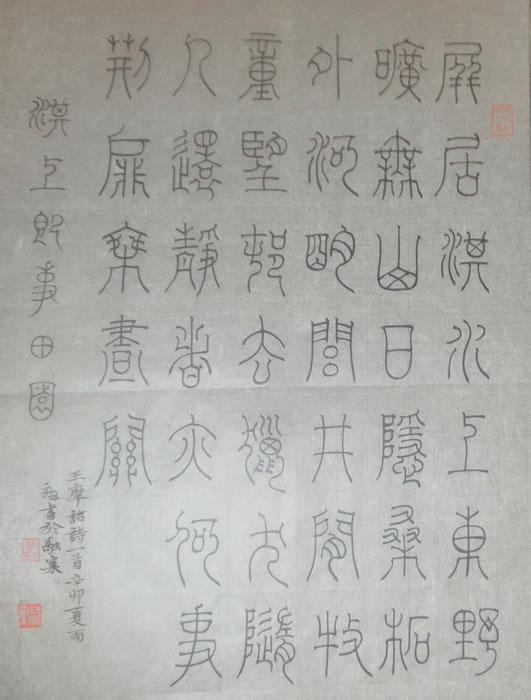 屏居淇水上東野
曠無山日隱桑柘
外河明閭井閒牧
童望邨去獵犬隨
人還靜者亦何事
荊扉乘晝關
淇上即事田園
王摩詰詩一首辛卯夏雨
書於融